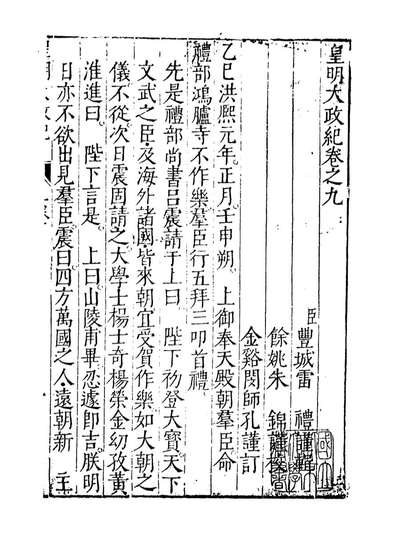 皇明大政紀卷之九
臣豐城雷 禮謹輯
餘姚朱 錦謹校
金谿閔師孔謹訂
乙巳洪熙元年正月壬申朔 上御奉天殿朝羣臣命
禮部鴻臚寺不作樂羣臣行五拜三叩首禮
先是禮部尚書呂震請于上曰 陛下初登大寶天下
文武之臣及海外諸國皆來朝宜受賀作樂如大朝之
儀不從次日震固請之大學士楊士奇楊榮金幼孜黃
淮進曰 陛下言是 上曰山陵甫畢忍遽即吉朕明
日亦不欲出見羣臣震曰四方萬國之人遠朝新 主